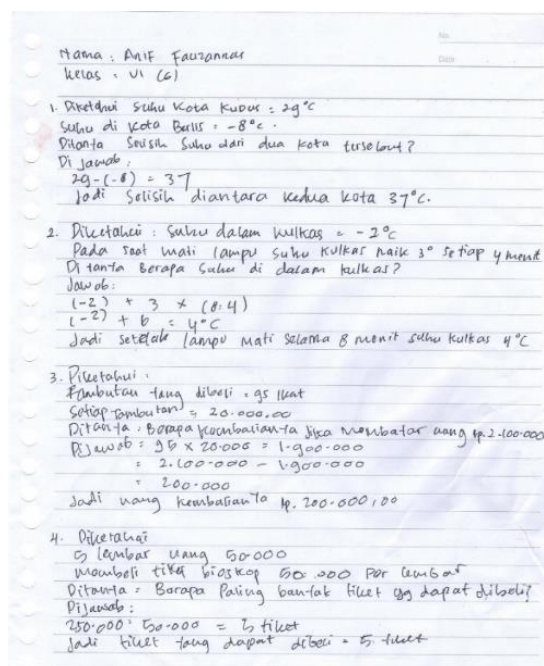 No.
Date
Nama : Anif Fauzannar
Kelas : VI (6)
1. Diketahui Suhu Kota Kudus = 29°C
Suhu di Kota Berlis = -8°C.
Ditanya Selisih Suhu dari dua kota tersebut?
Di jawab :
29-(-8) = 37
Jadi Selisih diantara kedua kota 37°C.
2. Diketahui : Suhu dalam kulkas = -2°C
Pada saat mati lampu suhu kulkas naik 3° setiap 4 menit
Di tanya Berapa Suhu di dalam kulkas?
Jawab:
(-2) + 3 × (8:4)
(-2) + 6 = 4°C
Jadi setelah lampu mati selama 8 menit suhu kulkas 4°C
3. Diketahui :
Rambutan yang dibeli = 95 Ikat
Setiap rambutan = 20.000,00
Ditanya : Berapa kembalianya Jika Membayar uang Rp. 2.100.000
Dijawab : 95 × 20.000 = 1.900.000
= 2.100.000 - 1.900.000
= 200.000
Jadi uang kembalianya Rp. 200.000,00
4. Diketahui
5 lembar uang 50.000
membeli tiket bioskop 50.000 per lembar
Ditanya = Berapa Paling banyak tiket yg dapat dibeli?
Dijawab :
250.000 : 50.000 = 5 tiket
Jadi tiket yang dapat dibeli = 5 tiket